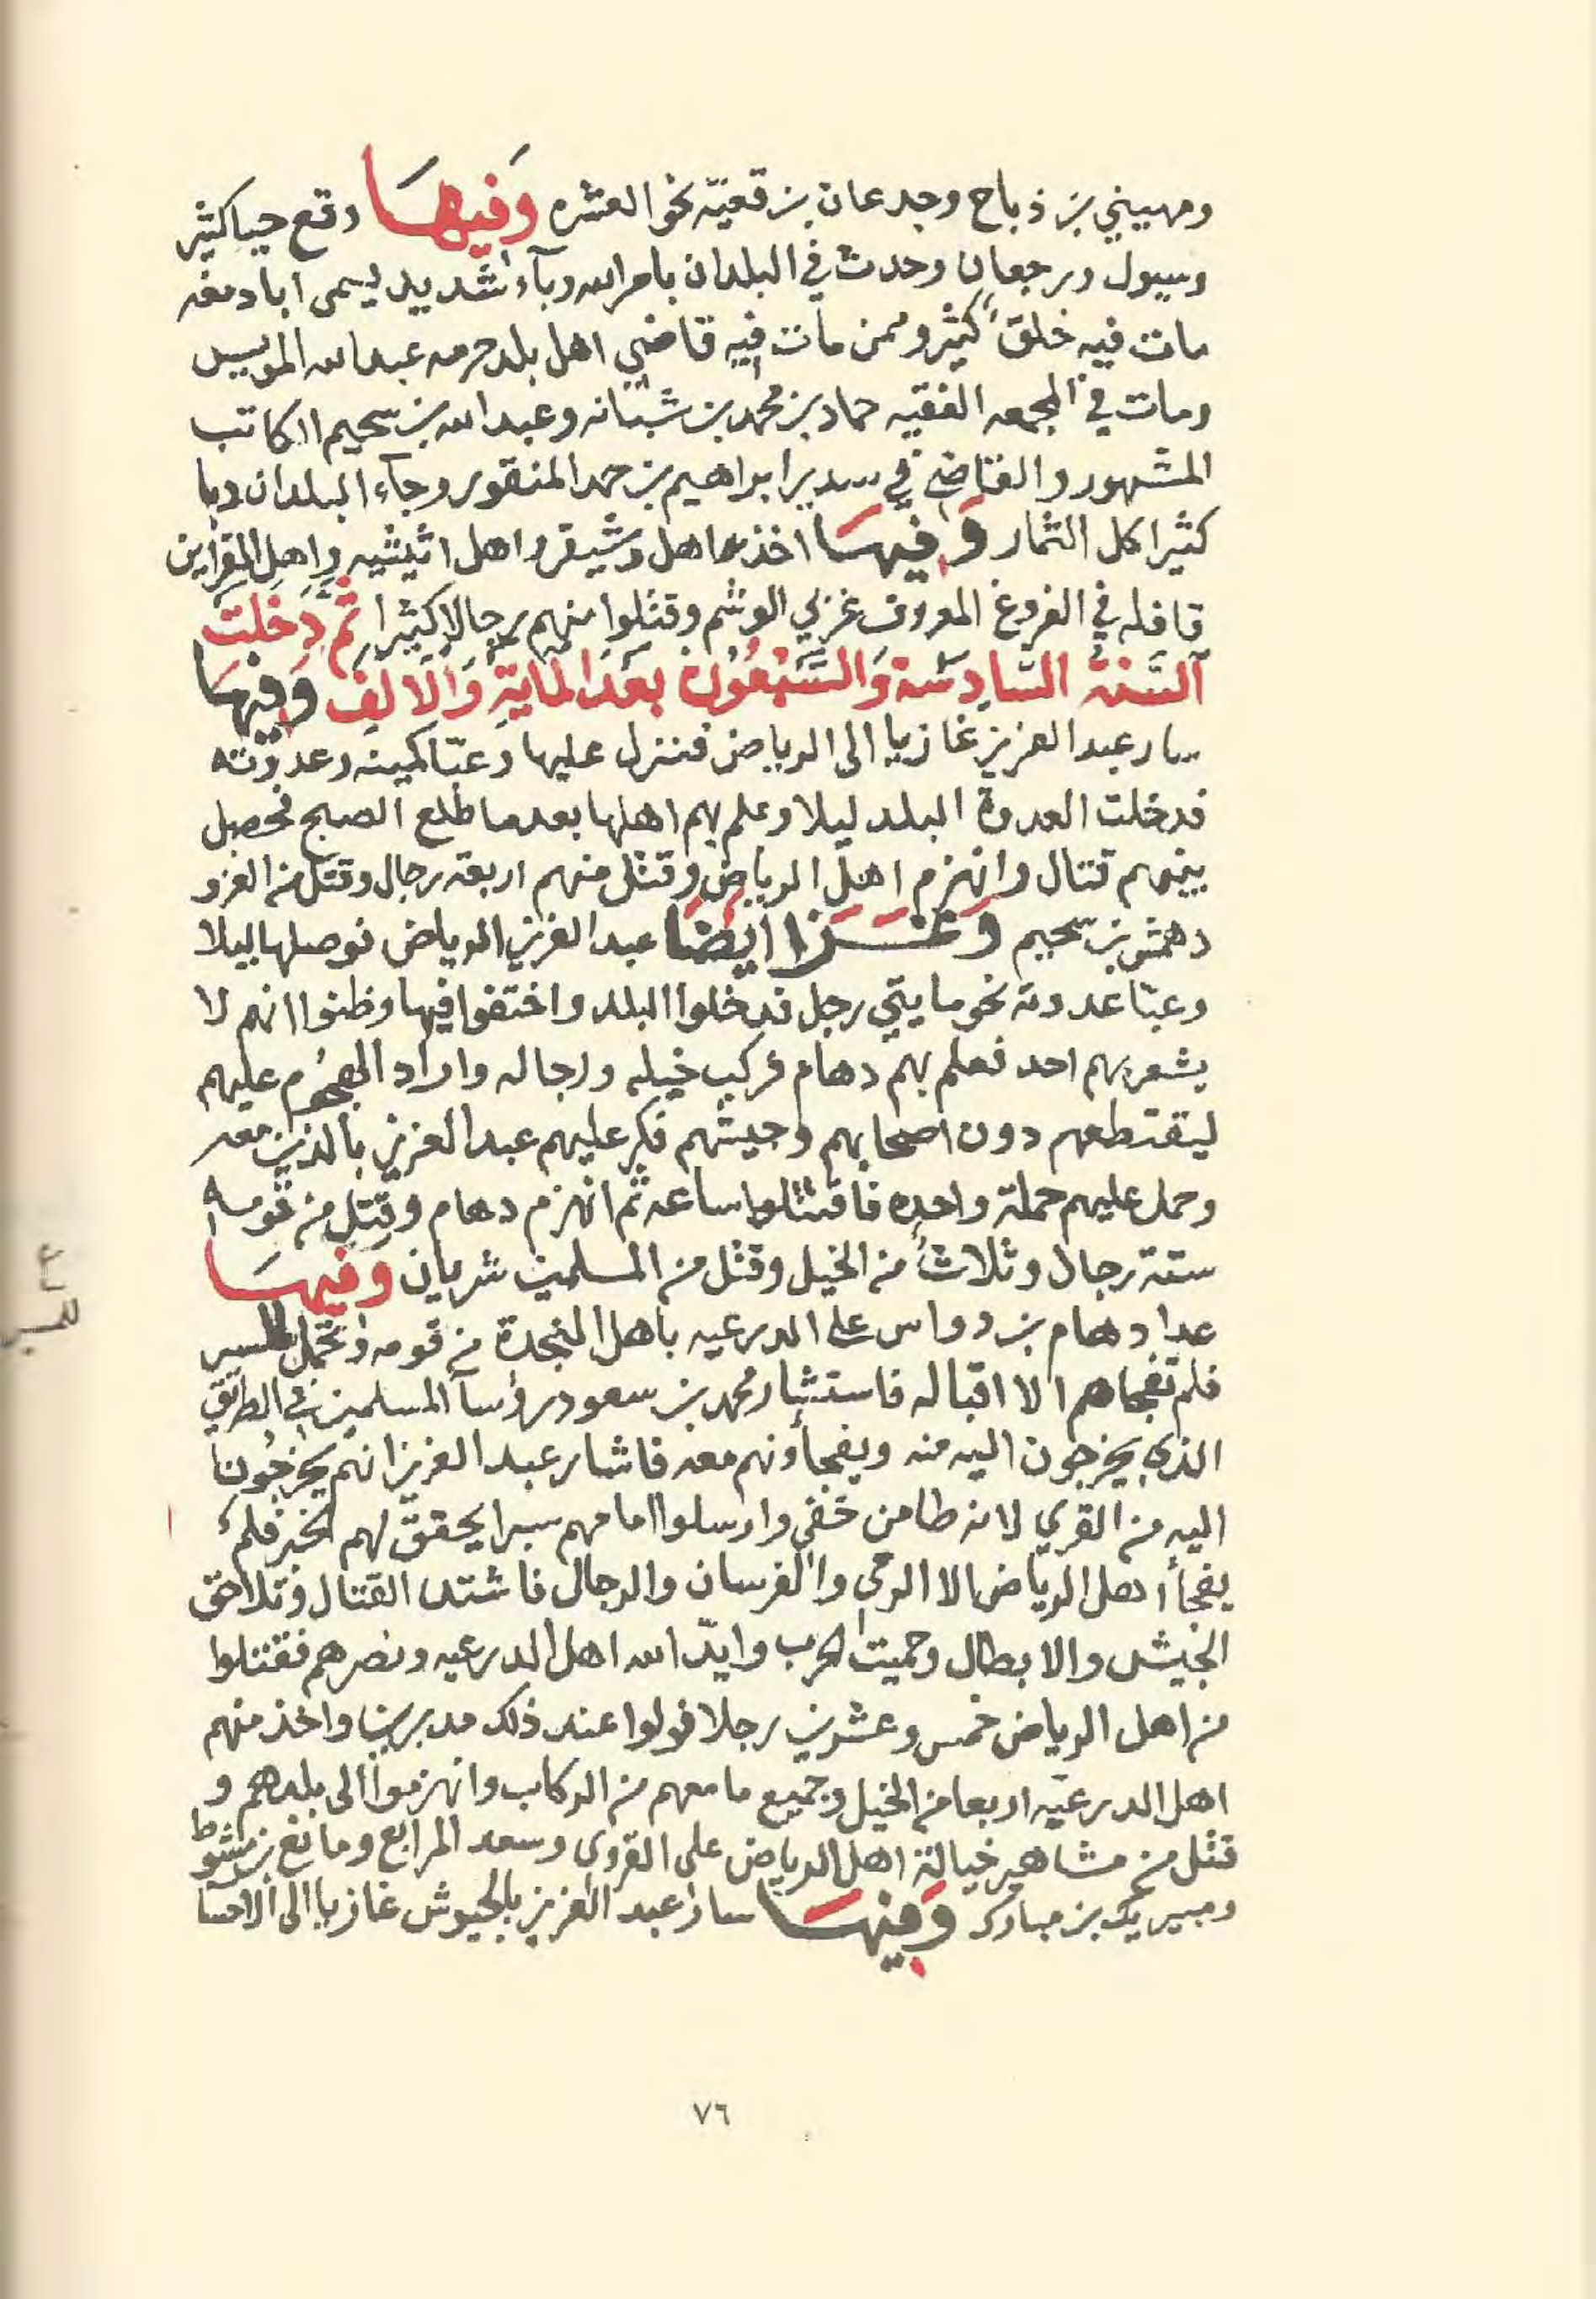 ومهيني بن ذباح وجدعان بن قعيّه نحو العشره وَفيهَا وقع حيا كثير
وسيول ورجعان وحدث في البلدان بامر الله وبآء شديد يسمى ابا دمغه
مات فيه خلق كثير وممن مات فيه قاضي اهل بلد حرمه عبد الله المويس
ومات في المجمعه الفقيه حماد بن محمد بن شبانه وعبد الله بن سحيم الكاتب
المشهور والقاضي في سدير ابراهيم بن حمد المنقور وجآء البلدان دبا
كثير اكل الثمار وَفيهَا اخذوا اهل وشيقر واهل اثيثيه واهل القراين
قافله في الفروغ المعروف غربي الوشم وقتلوا منهم رجالا كثيرا ثُمَّ دَخَلَت
اَلسَّنَة السَّادِسَة وَالسَّبْعُون بَعدَ المايَةِ وَالاَلِف وَفيهَا
سار عبد العزيز غازيا الى الرياض فنزل عليها وعبّا كمينه وعدوته
فدخلت العدوة البلد ليلا وعلم بهم اهلها بعد ما طلع الصبح فحصل
بينهم قتال وانهزم اهل الرياض وقتل منهم اربعة رجال وقتل من الغزو
دهمش بن سحيم وَغَزَا اَيضًا عبد العزيز الرياض فوصلها ليلا
وعبّا عدوته نحو مايتي رجل فدخلوا البلد واختفوا فيها وظنوا انهم لا
يشعر بهم احد فعلم بهم دهام فركب خيله ورجاله واراد الهجوُم عليهم
ليقتطعهم دون اصحابهم وجيشهم فكر عليهم عبد العزيز بالذين معه
وحمل عليهم حملة واحده فاقتتلوا ساعه ثم انهزم دهام وقتل من قومه
ستة رجال وثلاثُ من الخيل وقتل من المسلمين شريان وَفيهَا
عدا دهام بن دواس على الدرعيه باهل النجدة من قومه وتحمل المسير
فلم تفجاهم الا اقباله فاستشار محمد بن سعود روسآ المسلمين في الطريق
الذي يخرجون اليه منه ويفجأونهم معه فاشار عبد العزيز انهم يخرجُون
اليه من القري لانه طامن خفي وارسلوا امامهم سبرا يحققّ لهم الخبر فلم
يفجأ اهل الرياض الا الرمي والفرسان والرجال فاشتد القتال وتلاحق
الجيش والابطال وحميت الحرب وايدّ الله اهل الدرعيه ونصرهم فقتلوا
من اهل الرياض خمس وعشرين رجلا فولوا عند ذلك مدبرين واخذ منهم
اهل الدرعيّه اربعا من الخيل وجميع ما معهم من الركاب وانهزموا الى بلدهم و
قتل من مشاهير خيالة اهل الرياض على القروي وسعد المرابع ومانع بن مشوط
ومبيريك بن مبارك وَفيهَا سار عبد العزيز بالجيوش غازيا الى الاحسا
٧٦